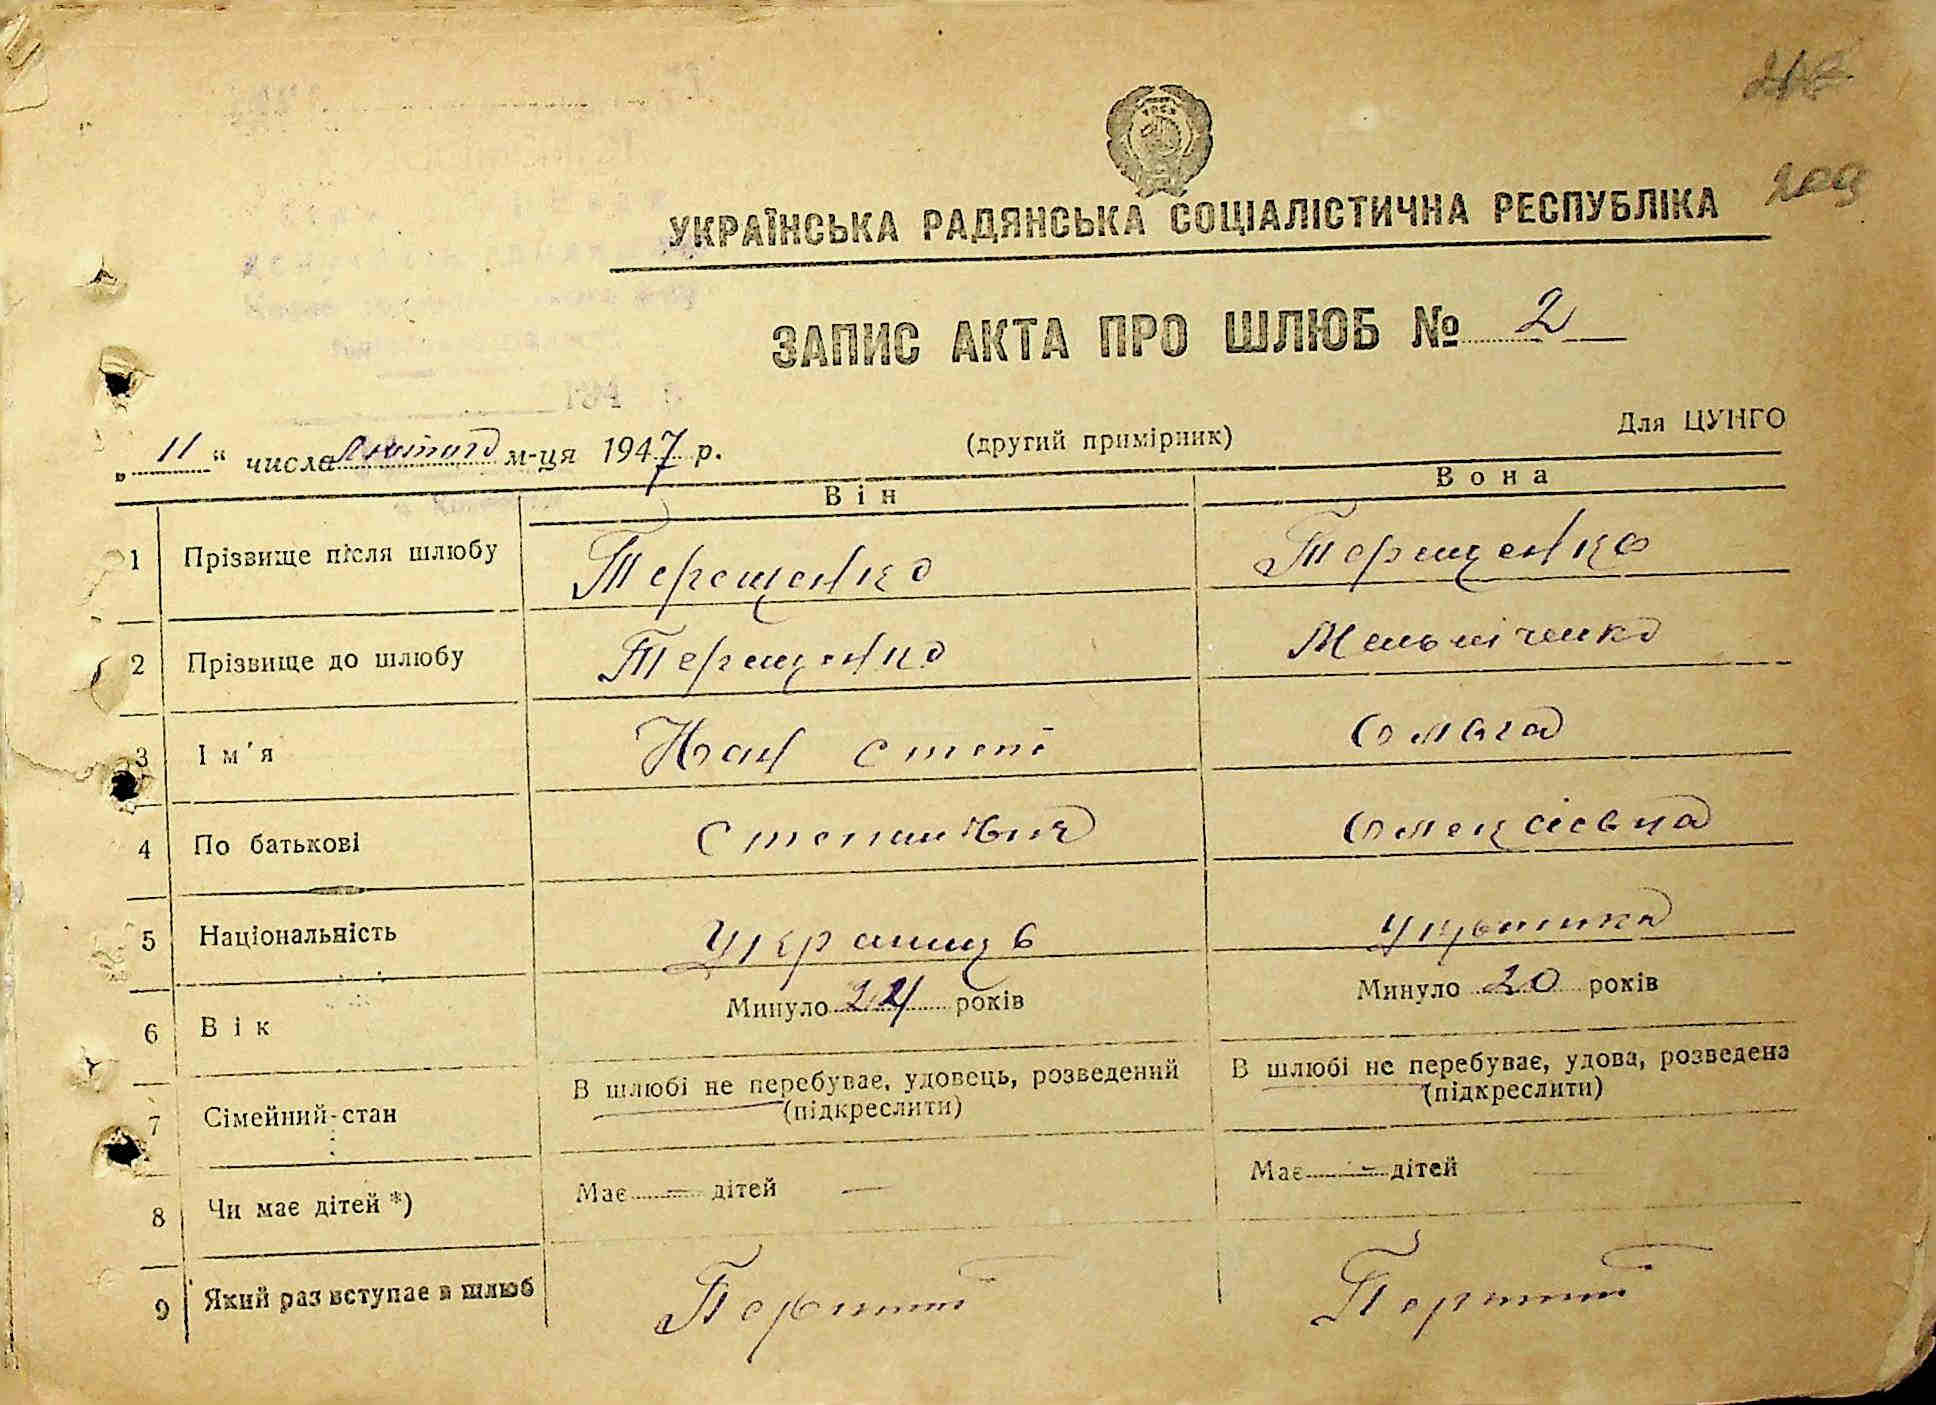 209
УКРАЇНСЬКА РАДЯНСЬКА СОЦІАЛІСТИЧНА РЕСПУБЛІКА
ЗАПИС АКТА ПРО ШЛЮБ № 2
Для ЦУНГО
„ 11 “ числа Лютого м-ця 1947 р. (другий примірник)
Він Вона
1 Прізвище після шлюбу Терещенко Терещенко
2 Прізвище до шлюбу Терещенко Мельніченко
3 Ім'я Іван Ольга
4 По батькові Степанович Олексієвна
5 Національність Українець Українка
6 Вік Минуло 24 років Минуло 20 років
7 Сімейний стан В шлюбі не перебуває, удовець, розведений В шлюбі не перебуває, удова, розведена
(підкреслити) (підкреслити)
8 Чи має дітей *) Має — дітей — Має — дітей
9 Який раз вступає в шлюб Перший Перший